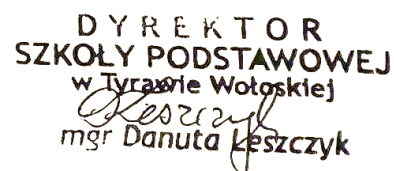 DYREKTOR
SZKOŁY PODSTAWOWEJ
w Tyrawie Wołoskiej
Leszczyk
mgr Danuta Leszczyk